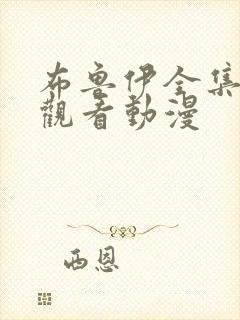 布魯伊全集
觀看動漫
西恩